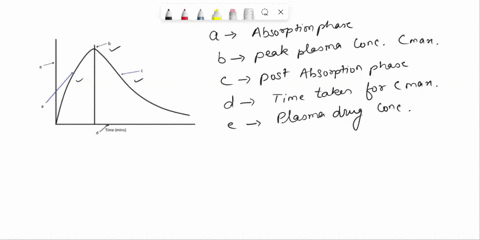 a → Absorption phase
b → peak plasma Conc. Cmax.
c → post Absorption phase
d → Time taken for Cmax.
e → Plasma drug Conc.
Time (mins)